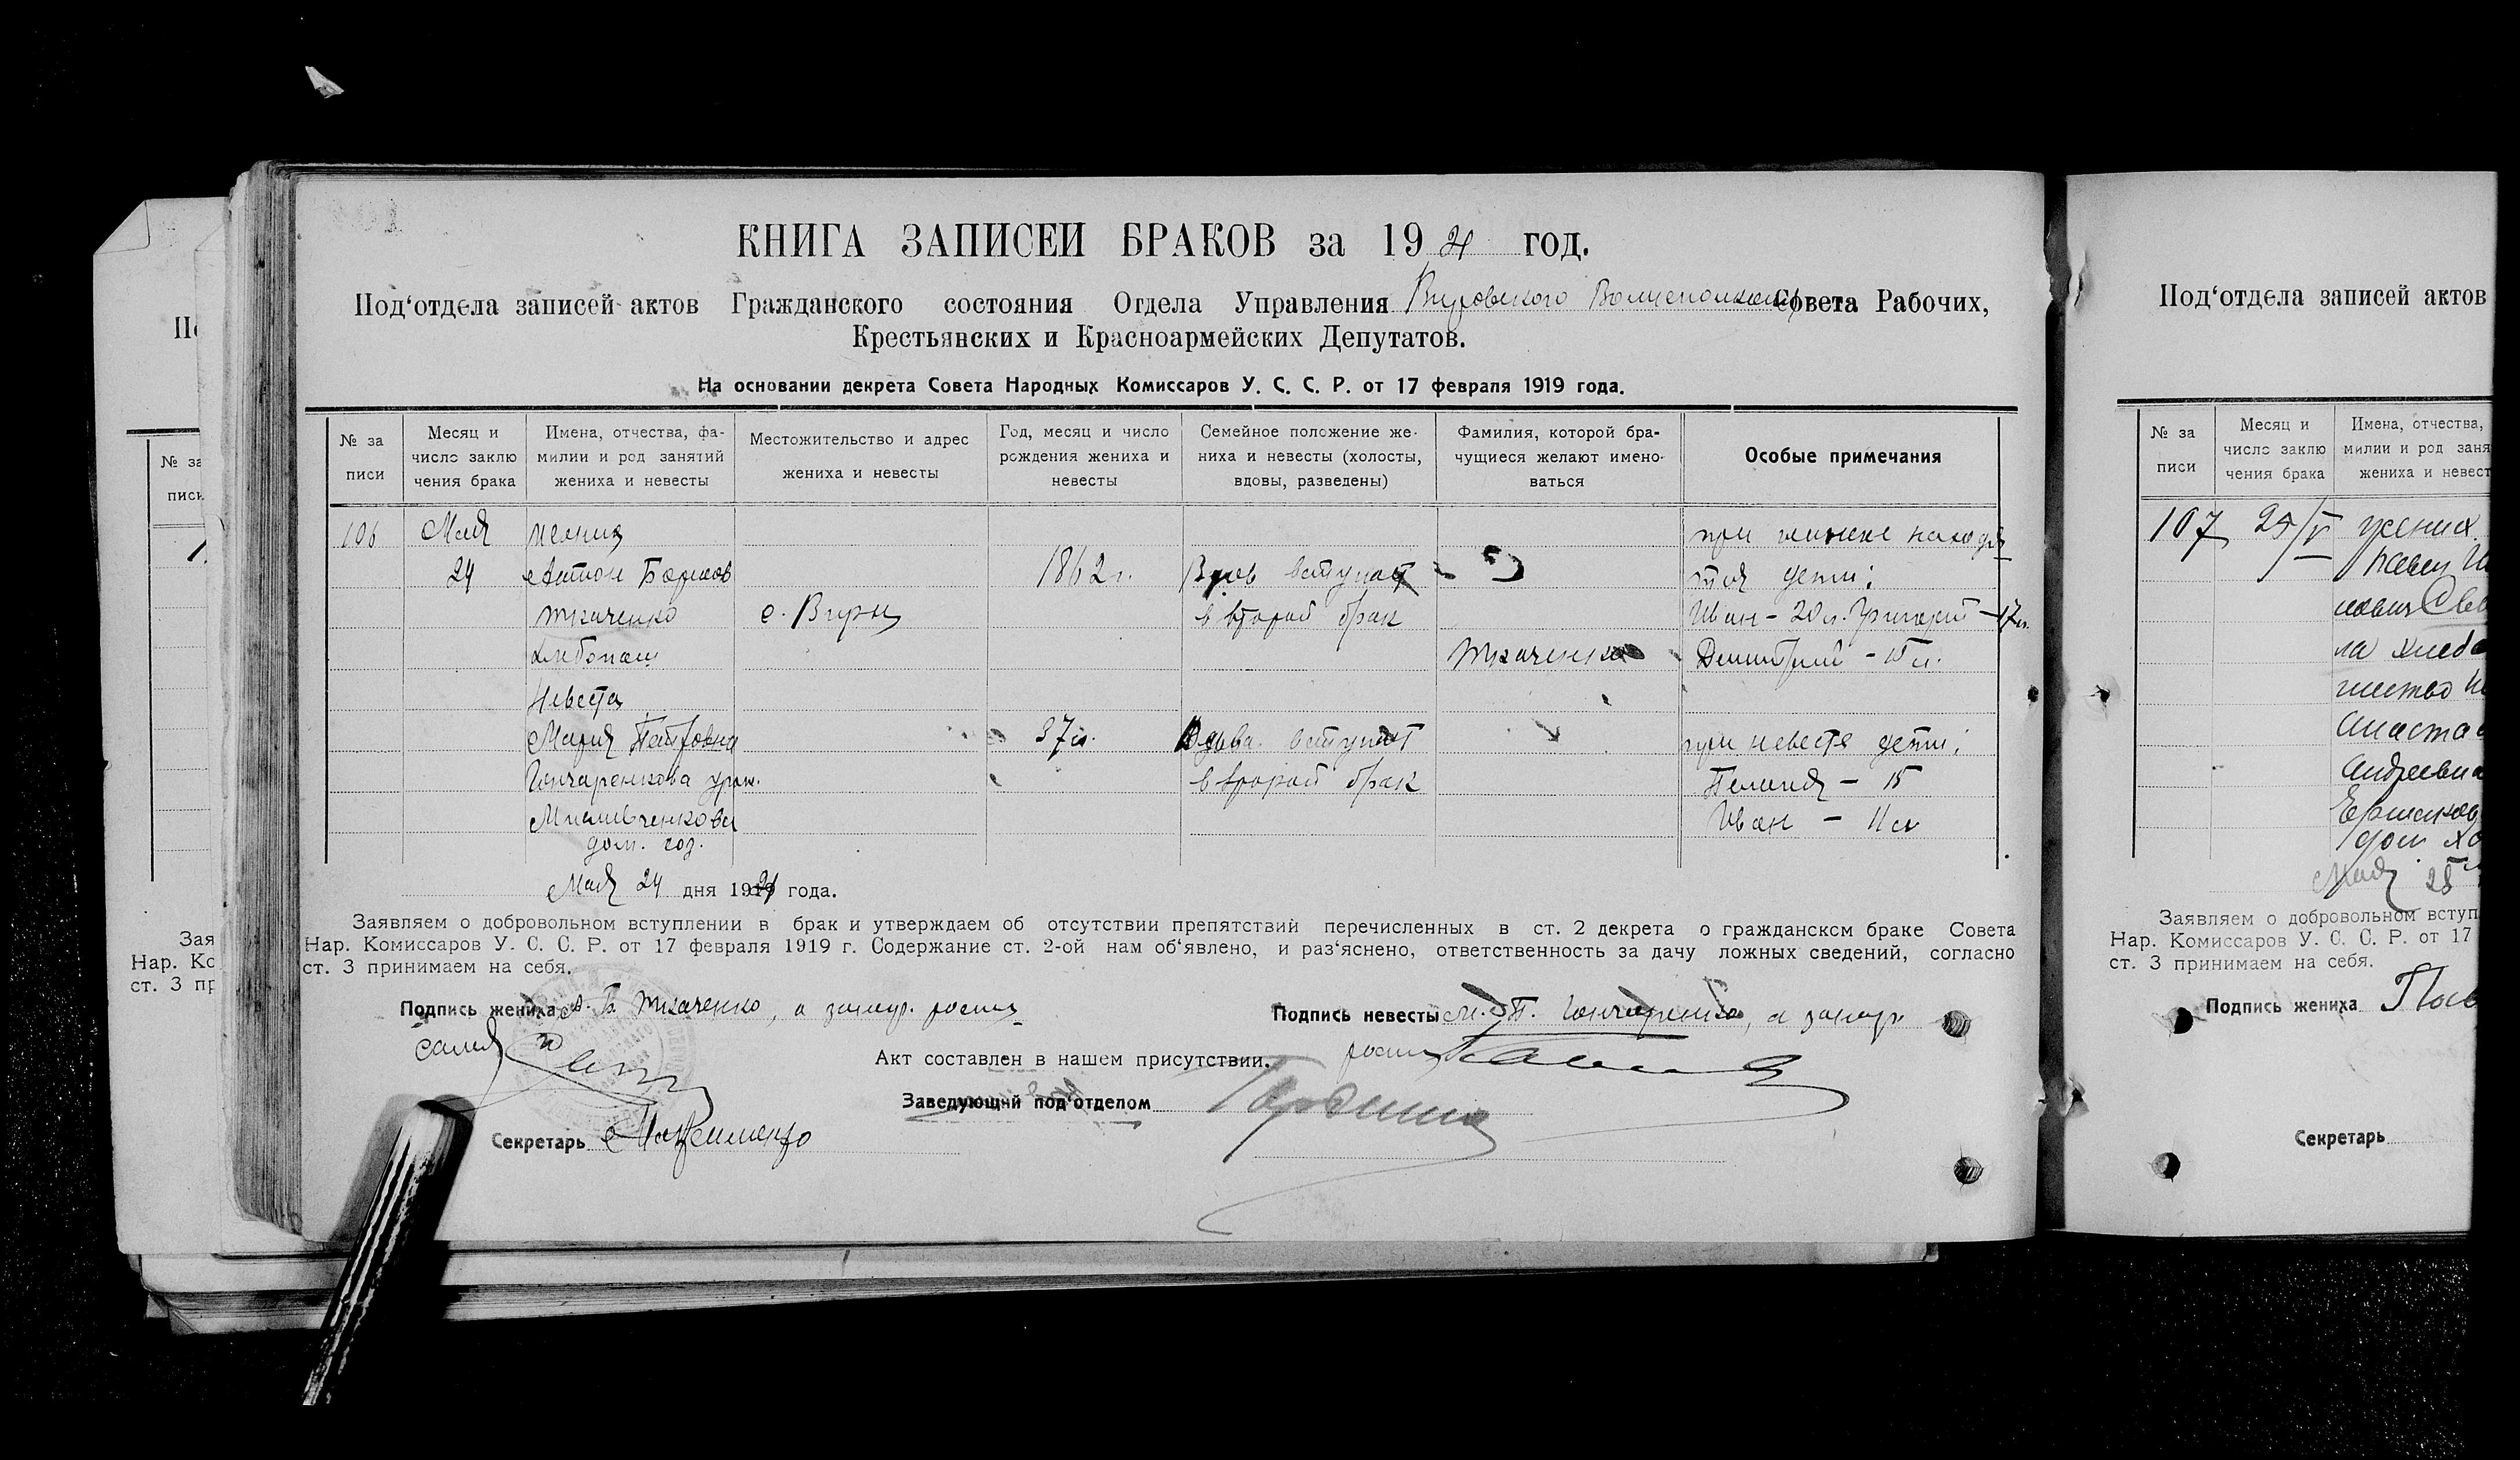 КНИГА ЗАПИСЕЙ БРАКОВ за 1921 год.
Под‘отдела записей актов Гражданского состояния Отдела Управления Вировского Волисполкома Совета Рабочих,
Крестьянских и Красноармейских Депутатов.
На основании декрета Совета Народных Комиссаров У. С. С. Р. от 17 февраля 1919 года.
№ за
писи
Месяц и
число заклю
чения брака
Имена, отчества, фа-
милии и род занятий
жениха и невесты
Местожительство и адрес
жениха и невесты
Год, месяц и число
рождения жениха и
невесты
Семейное положение же-
ниха и невесты (холосты,
вдовы, разведены)
Фамилия, которой бра-
чущиеся желают имено-
ваться
Особые примечания
106
Мая
24
жених
Антон Борисов
Ткаченко
хлебопаш
Невеста
Мария Петровна
Гончаренкова урож.
дом. хоз.
с. Виры
1862 г.
37 л.
Вдов вступает
в второй брак
Вдова вступает
в второй брак
Ткаченко
при женихе находя
тся дети:
Иван – 20 л. Григорий – 17 л.
Дмитрий – 15 л.
при невесте дети:
Пелагея – 15
Иван – 11 л
Мая 24 дня 1921 года.
Заявляем о добровольном вступлении в брак и утверждаем об отсутствии препятствий перечисленных в ст. 2 декрета о гражданском браке Совета
Нар. Комиссаров У. С. С. Р. от 17 февраля 1919 г. Содержание ст. 2-ой нам об‘явлено, и раз‘яснено, ответственность за дачу ложных сведений, согласно
ст. 3 принимаем на себя.
Подпись жениха А. Б. Ткаченко, а
Подпись невесты М. П. Гончаренко, а
Акт составлен в нашем присутствии.
Заведующий под‘отделом
Секретарь
Под‘отдела записей актов
№ за
писи
Месяц и
число заклю
чения брака
Имена, отчества,
милии и род заня
жениха и невест
107
25/V
жених
Андреевна
дом хо
Мая 25
Заявляем о добровольном вступ
Нар. Комиссаров У. С. С. Р. от 17
ст. 3 принимаем на себя.
Подпись жениха
Секретарь
№ за
писи
Зая
Нар. Ко
ст. 3 пр